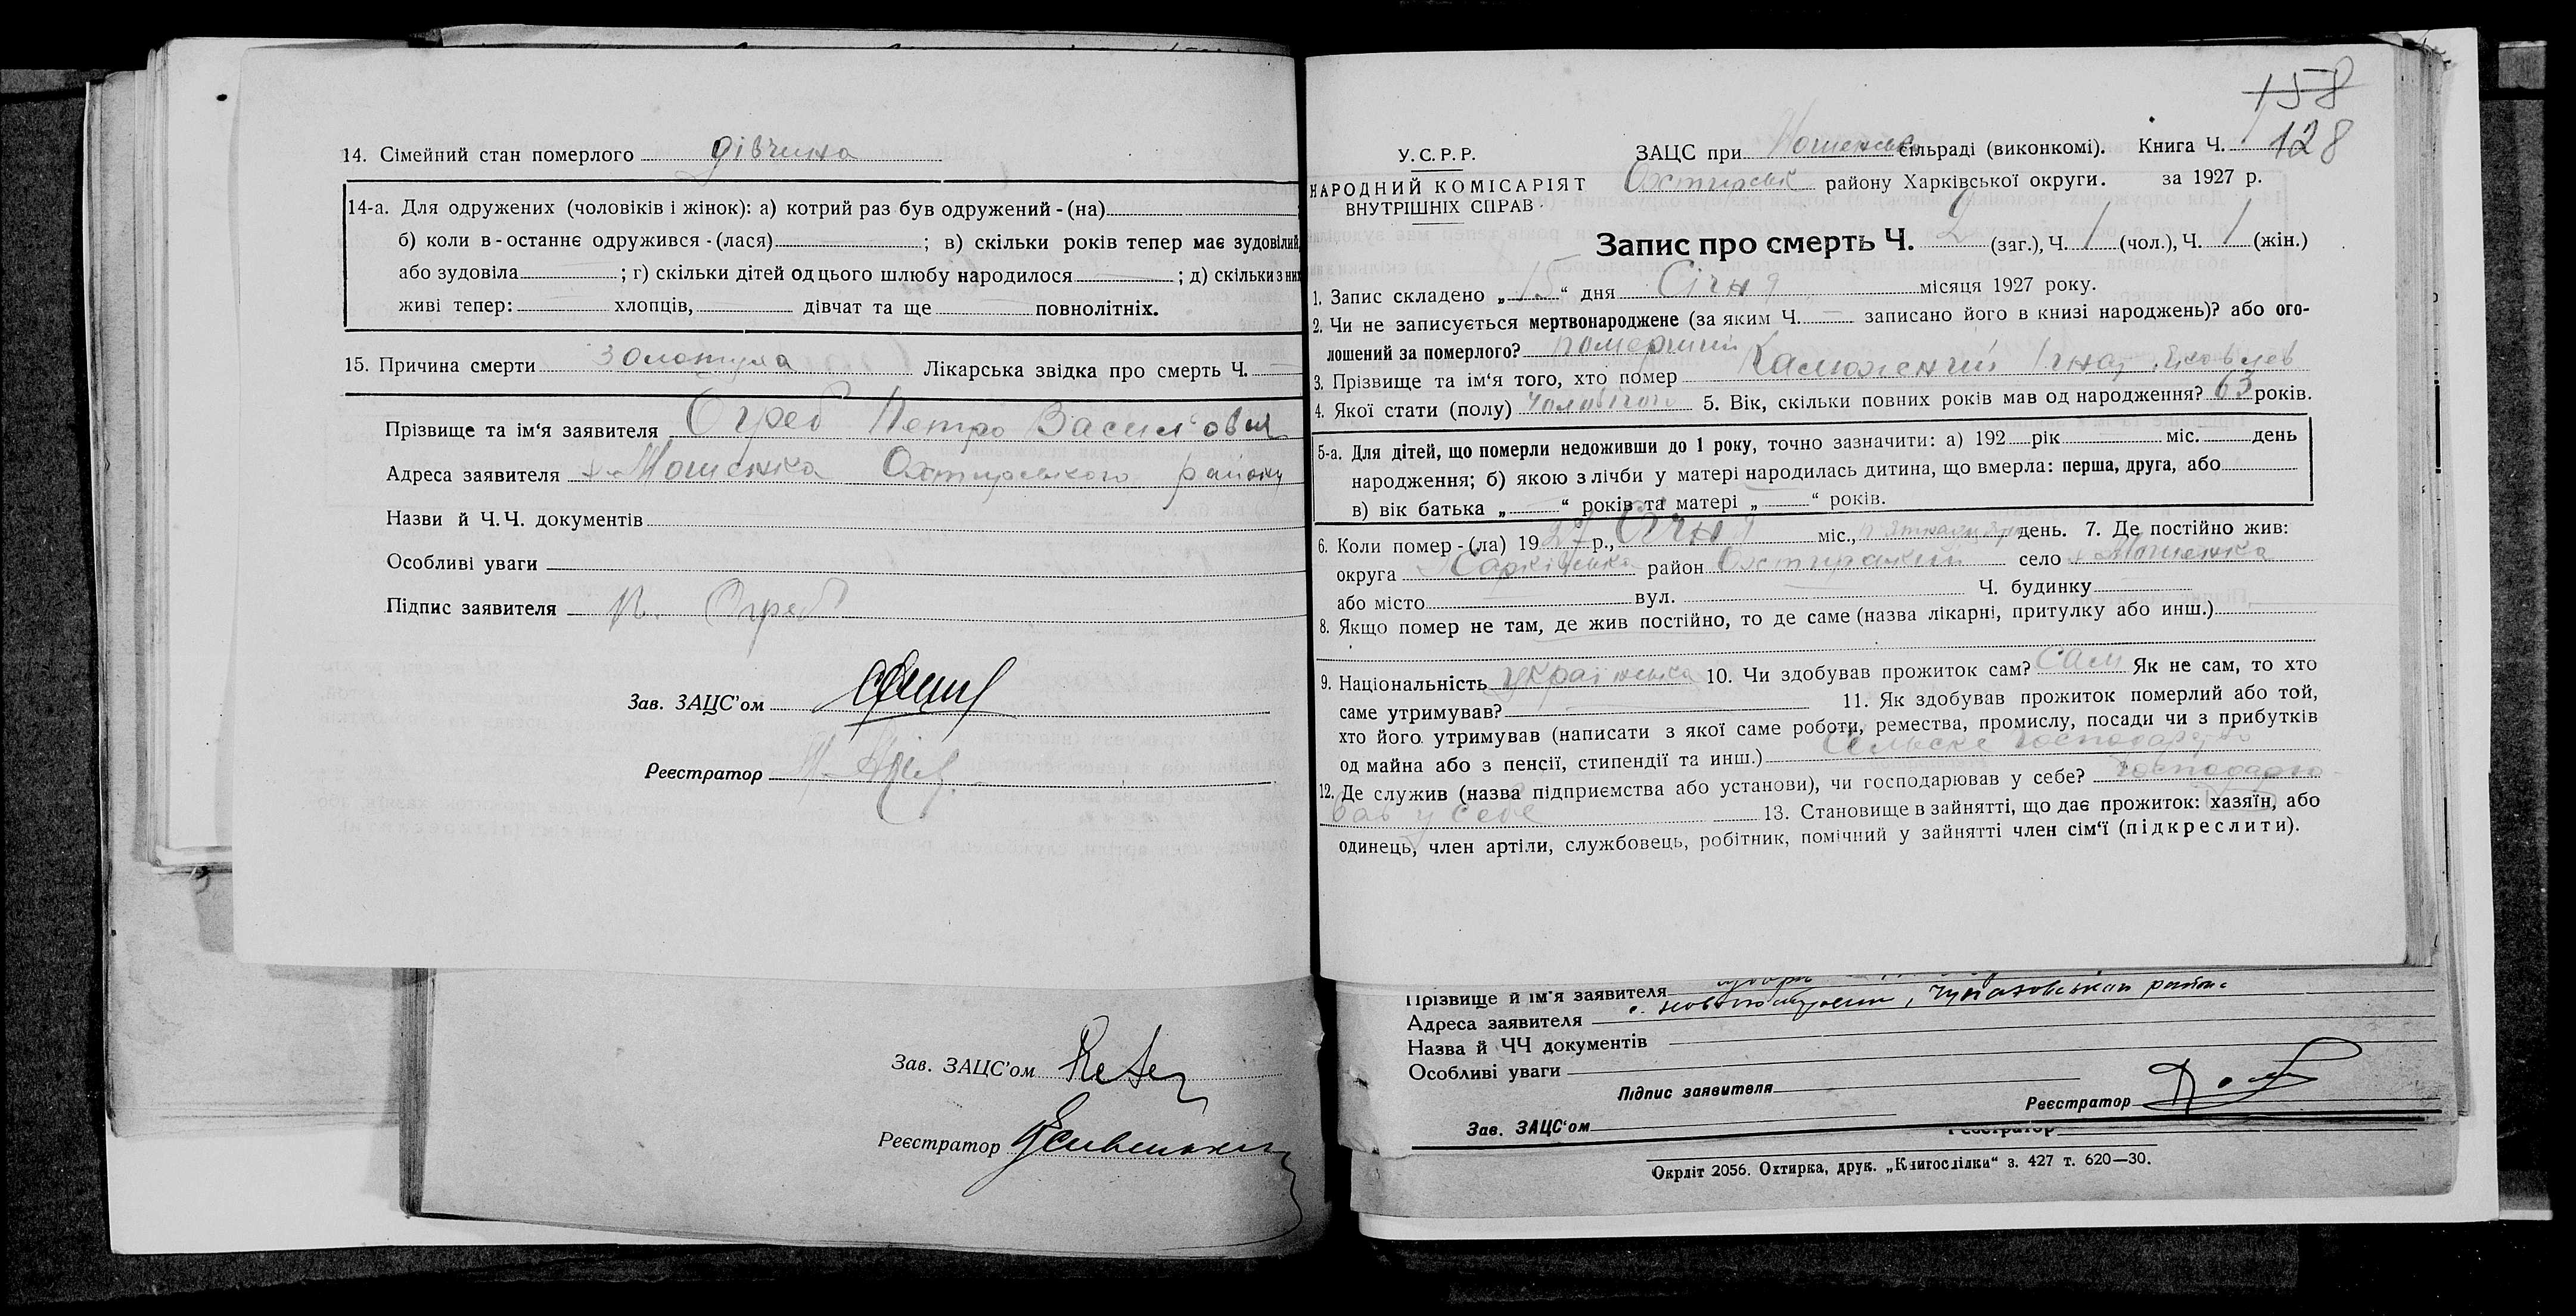 14. Сімейний стан померлого дівчина
14-а. Для одружених (чоловіків і жінок): а) котрий раз був одружений - (на)
б) коли в - останнє одружився - (лася) ; в) скільки років тепер має зудовілий,
або зудовіла ; г) скільки дітей од цього шлюбу народилося ; д) скільки з них
живі тепер: хлопців, дівчат та ще повнолітніх.
15. Причина смерти золотуха Лікарська звідка про смерть Ч.
Прізвище та ім'я заявителя Огреб Петро Васильович
Адреса заявителя х. Мошенка Охтирського району
Назви й Ч.Ч. документів
Особливі уваги
Підпис заявителя П. Огреб
Зав. ЗАЦС'ом
Реєстратор
Зав. ЗАЦС'ом
Реєстратор
158
128
У.С.Р.Р.
НАРОДНИЙ КОМІСАРІЯТ
ВНУТРІШНІХ СПРАВ
ЗАЦС при сільраді (виконкомі). Книга Ч.
Охтирськ району Харківської округи. за 1927 р.
Запис про смерть Ч. 2 (заг.), Ч. 1 (чол.), Ч. 1 (жін.)
1. Запис складено „ 15 “ дня Січня місяця 1927 року.
2. Чи не записується мертвонароджене (за яким Ч. — записано його в книзі народжень)? або ого-
лошений за померлого? померший
3. Прізвище та ім'я того, хто помер
4. Якої стати (полу) 5. Вік, скільки повних років мав од народження? 63 років.
5-а. Для дітей, що померли недоживши до 1 року, точно зазначити: а) 192 рік міс. день
народження; б) якою з лічби у матері народилась дитина, що вмерла: перша, друга, або
в) вік батька „ “ років та матері „ “ років.
6. Коли помер - (ла) 1927 р., Січня міс., день. 7. Де постійно жив:
округа Харківська район Охтирський село х Мошенка
або місто вул. Ч. будинку
8. Якщо помер не там, де жив постійно, то де саме (назва лікарні, притулку або инш.)
9. Національність українська 10. Чи здобував прожиток сам? Сам Як не сам, то хто
саме утримував? 11. Як здобував прожиток померлий або той,
хто його утримував (написати з якої саме роботи, ремества, промислу, посади чи з прибутків
од майна або з пенсії, стипендії та инш.) Сельске господарство
12. Де служив (назва підприємства або установи), чи господарював у себе? господарю-
вав у себе 13. Становище в зайнятті, що дає прожиток: хазяїн, або
одинець, член артіли, службовець, робітник, помічний у зайнятті член сім'ї (підкреслити).
Прізвище й ім'я заявителя
Адреса заявителя
Назва й ЧЧ документів
Особливі уваги
Підпис заявителя
Реєстратор
Зав. ЗАЦС'ом
Реєстратор
Окрліт 2056. Охтирка, друк. „Книгоспілки“ з. 427 т. 620—30.